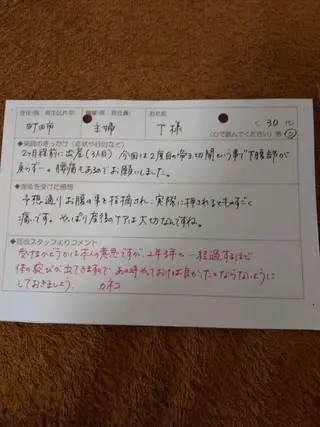 住所(例:麻生区片平) 職業(例:会社員) お名前
町田市 主婦 T様 く 30代
(○で囲んでください) 男・女
◆来院のきっかけ(症状や目的など)
2ヶ月程前に出産(3人目) 今回は2度目の帝王切開という事で下腹部が
戻らず…。腰痛もあるのでお願いしました。
◆施術を受けた感想
予想通りお腹の事を指摘され、実際に押されるとものすごく
痛いです。やっぱり産後のケアは大切なんですね。
◆担当スタッフよりコメント
受けるかどうかは本人の意思ですが、2年3年と…経過するほど
体の歪みが出てきますので、あの時やっておけば良かったとならないように
しておきましょう。 カネコ